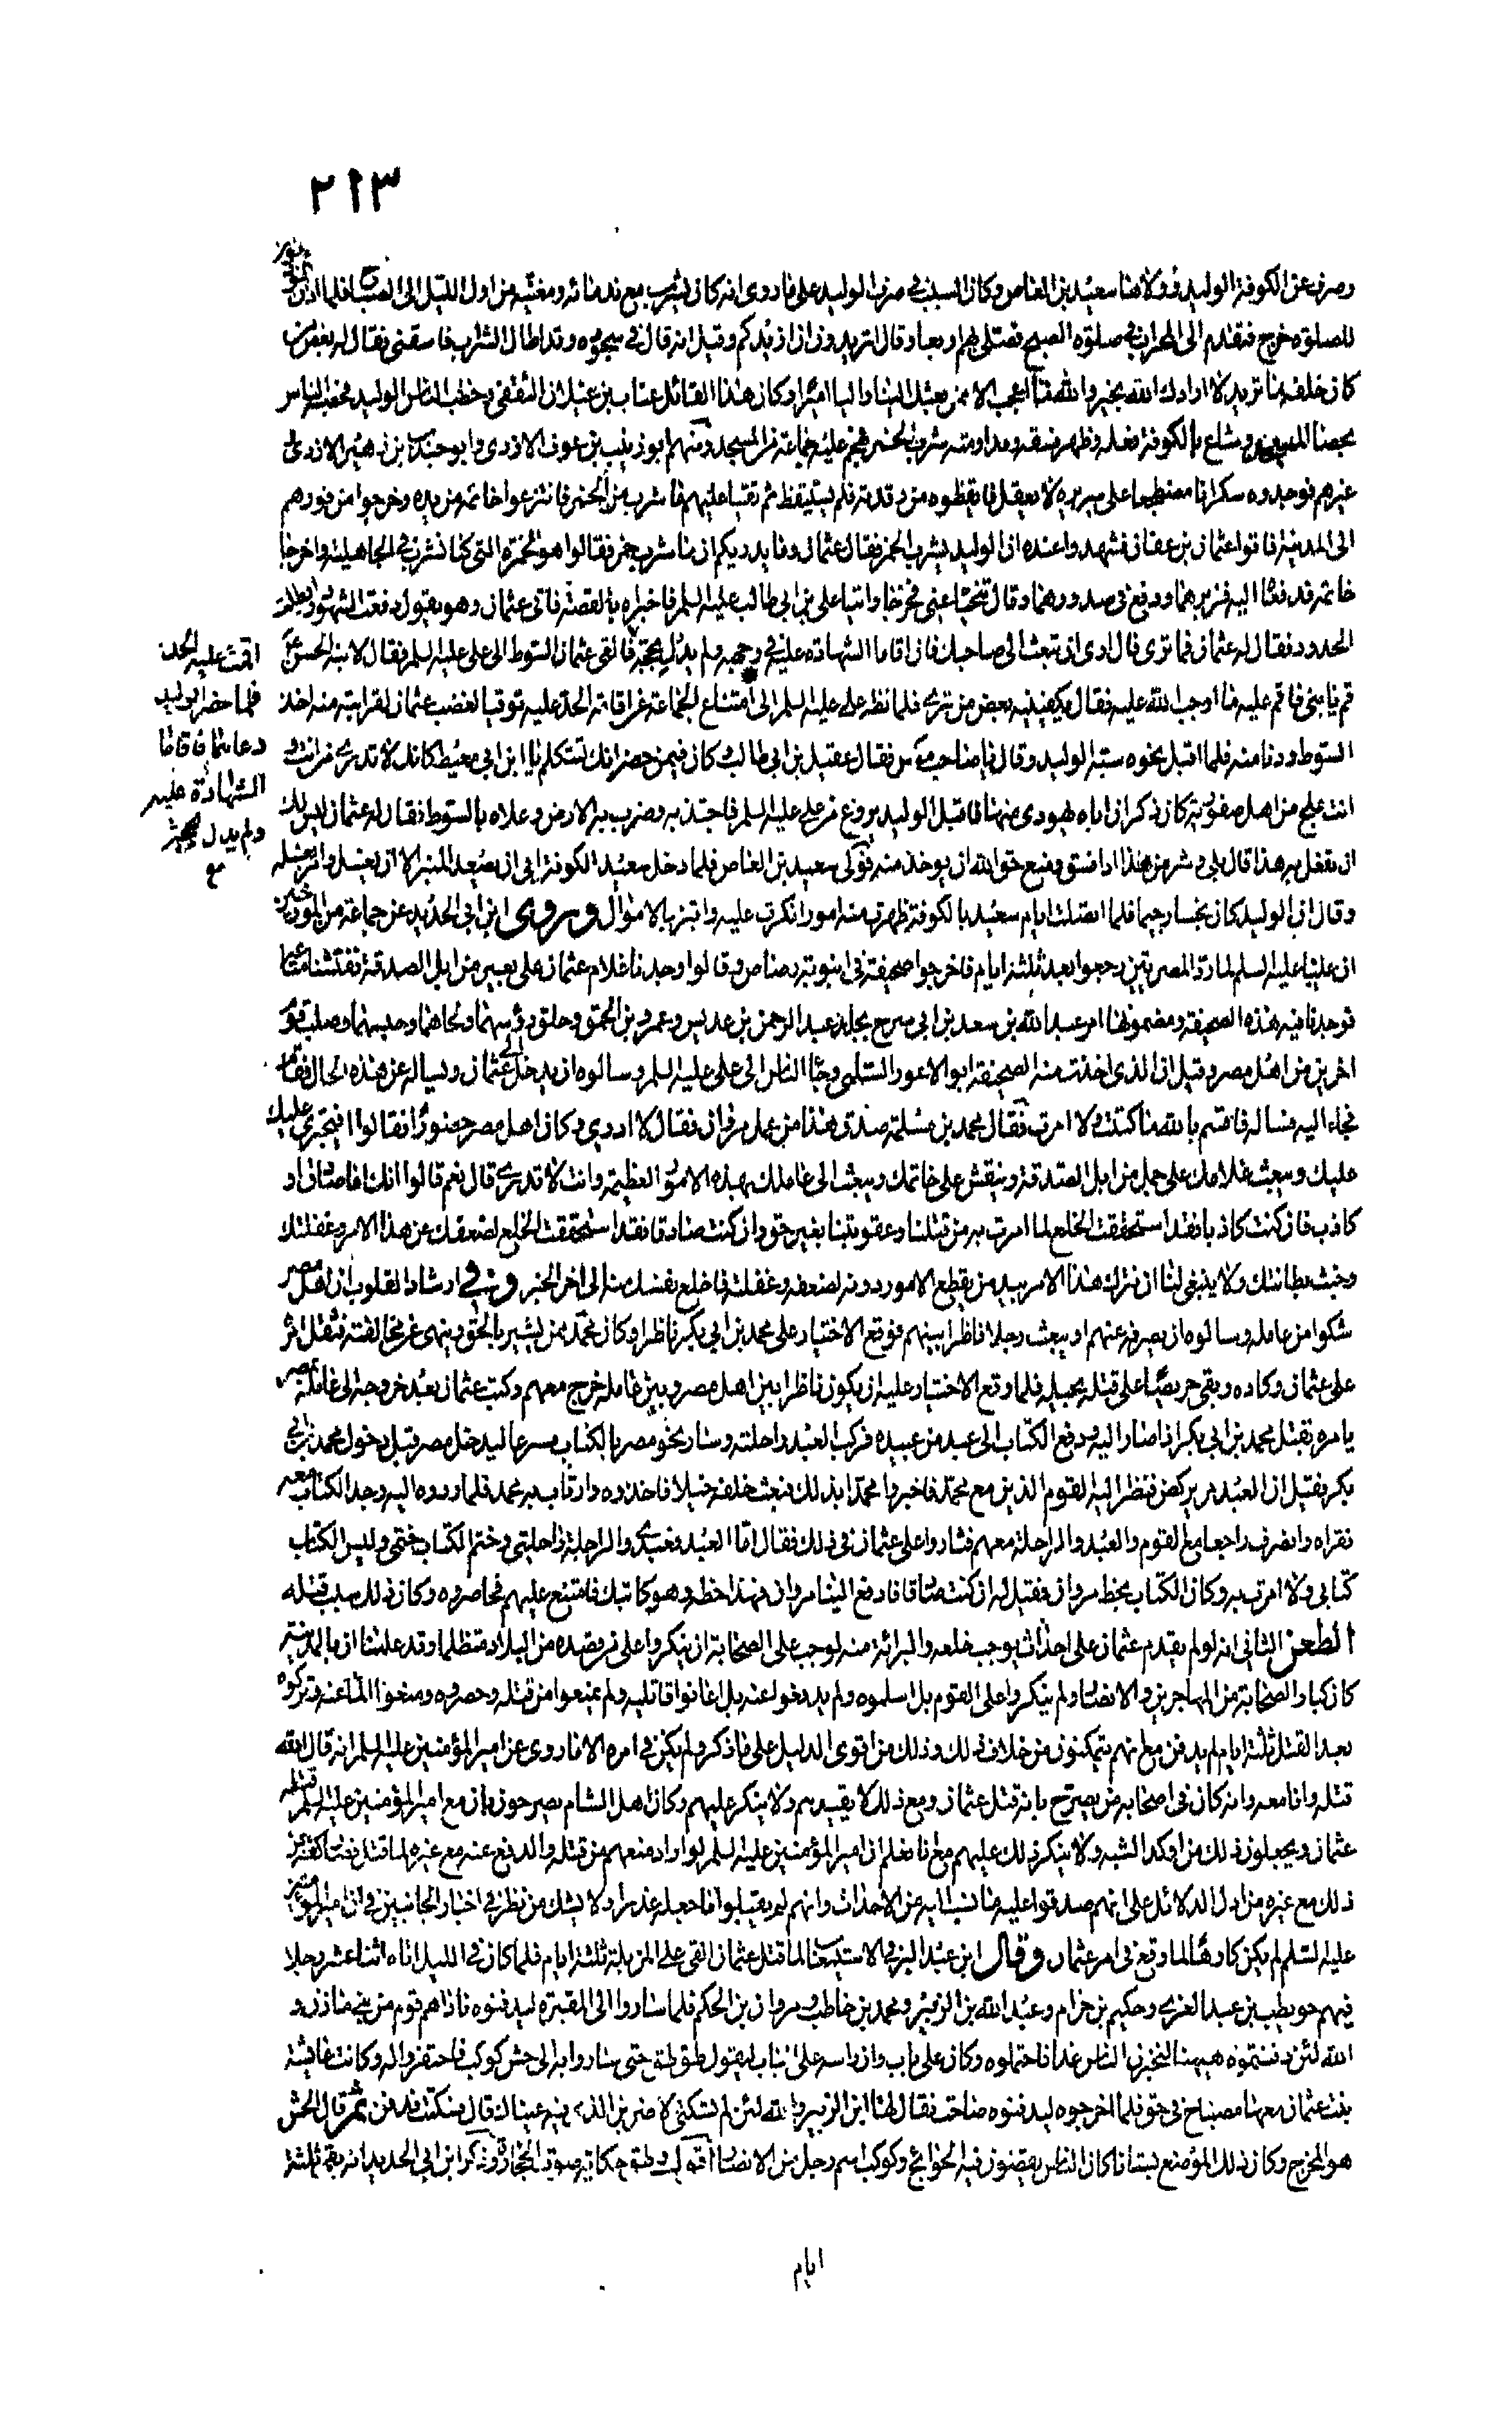 ٢١٣
وصرف عن الكوفة الوليد وولاها سعيد بن العاص وكان السبب في صرف الوليد على ما روي انه كان يشرب مع ندمائه ومغنيه من اول الليل الى الصباح فلما اذن
للصلوة خرج فتقدم الى المحراب في صلوة الصبح فصلى بهم اربعا وقال اتريدون ان ازيدكم وقيل انه قال في سجوده وقد اطال الشراب فاسقني فقال له بعض من
كان خلفه ما تزيد لا زادك الله بخير والله ما اعجب الا ممن بعثك الينا واليا اميرا وكان هذا القائل عتاب بن غيلان الثقفي وخطب الناس الوليد فحصبه الناس
بحصباء المسجد وشاع بالكوفة فعله وظهر فسقه ومداومته شرب الخمر فهجم عليه جماعة من المسجد منهم ابو زينب بن عوف الازدي وابو جندب بن زهير الازدي
غيرهم فوجدوه سكرانا مضطجعا على سريره لا يعقل فايقظوه من رقدته فلم يستيقظ ثم تقيا عليهم ما شرب من الخمر فانتزعوا خاتمه من يده وخرجوا من فورهم
الى المدينة فاتوا عثمان بن عفان فشهدوا عنده ان الوليد يشرب الخمر فقال عثمان وما يدريكم ان ما شرب خمر فقالوا هو الخمرة التي كنا نشرب في الجاهلية واخرجا
خاتمه فدفعا اليه فزبرهما ودفع في صدورهما وقال تنحيا عني فخرجا واتيا علي بن ابي طالب عليه السلم فاخبراه بالقصة فاتى عثمان وهو يقول دفعت الشهود وابطلت
الحدود فقال له عثمان فما ترى قال ارى ان تبعث الى صاحبك فان اقاما الشهادة عليه في وجهه ولم يدل بحجة فالقى عثمان السوط الى علي عليه السلم فقال لابنه الحسن
اقمت عليه الحد
فلما حضر الوليد
دعاهما فاقاما
الشهادة عليه
ولم يدل بحجة
مع
قم يا بني فاقم عليه ما اوجب الله عليه فقال يكفينيه بعض من ترى فلما نظر علي عليه السلم الى امتناع الجماعة عن اقامة الحد عليه توقيا لغضب عثمان لقرابته منه اخذ
السوط ودنا منه فلما اقبل نحوه سبه الوليد وقال يا صاحب مكس فقال عقيل بن ابي طالب وكان فيمن حضر انك لتتكلم يا ابن ابي معيط كانك لا تدري من انت
انت علج من اهل صفورية كان ذكر ان اباه يهودي منها فاقبل الوليد يروغ من علي عليه السلم فاجتذبه وضرب به الارض وعلاه بالسوط فقال له عثمان ليس لك
ان تفعل به هذا قال بلى وشر من هذا اذا فسق ومنع حق الله ان يوخذ منه فولى سعيد بن العاص فلما دخل سعيد الكوفة ابى ان يصعد المنبر الا ان يغسل وامر بغسله
وقال ان الوليد كان نجسا رجيما فلما اتصلت ايام سعيد بالكوفة ظهرت منه امور انكرت عليه وابتز بالاموال وروى ابن ابي الحديد عن جماعة من المورخين
ان عليا عليه السلم لما رد المصريين رجعوا بعد ثلثة ايام فاخرجوا صحيفة في انبوبة رصاص وقالوا وجدنا غلام عثمان على بعير من ابل الصدقة ففتشنا متاعه
فوجدنا فيه هذه الصحيفة ومضمونها امر عبد الله بن سعد بن ابي سرح بجلد عبد الرحمن بن عديس وعمرو بن الحمق وحلق رؤسهما ولحاهما وحبسهما وصلب قوم
اخرين من اهل مصر وقيل ان الذي اخذت منه الصحيفة ابو الاعور السلمي وجاء الناس الى علي عليه السلم وسالوه ان يدخل الى عثمان ويساله عن هذه الحال فقام
فجاء اليه فساله فاقسم بالله ما كتبته ولا امرت فقال محمد بن مسلمة صدق هذا من عمل مروان فقال لا ادري وكان اهل مصر حضورا فقالوا افيجترى عليك
عليك ويبعث غلامك على جمل من ابل الصدقة وينقش على خاتمك ويبعث الى عاملك بهذه الامور العظيمة وانت لا تدري قال نعم قالوا انك اما صادق او
كاذب فان كنت كاذبا فقد استحققت الخلع لما امرت به من قتلنا وعقوبتنا بغير حق وان كنت صادقا فقد استحققت الخلع لضعفك عن هذا الامر وغفلتك
وخبث بطانتك ولا ينبغي لنا ان نترك هذا الامر بيد من يقطع الامور دونه لضعفه وغفلته فاخلع نفسك منه الى اخر الخبر وفي ارشاد القلوب ان اهل مصر
شكوا من عامله وسالوه ان يصرفه عنهم او يبعث رجلا ناظرا بينهم فوقع الاختيار على محمد بن ابي بكر ناظرا وكان محمد ممن يشير بالحق وينهى عن مخالفته فثقل امره
على عثمان وكاده وبقي حريصا على قتله بحيلة فلما وقع الاختيار عليه ان يكون ناظرا بين اهل مصر وبين عامله خرج معهم وكتب عثمان بعد خروجه الى عامله بمصر
يامره بقتل محمد بن ابي بكر اذا صار اليه ودفع الكتاب الى عبد من عبيده فركب العبد راحلته وسار نحو مصر بالكتاب مسرعا ليدخل مصر قبل دخول محمد بن ابي
بكر فقيل ان العبد مر يركض فنظر اليه القوم الذين مع محمد فاخبروا محمدا بذلك فبعث خلفه خيلا فاخذوه وارتاب به محمد فلما ردوه اليه وجد الكتاب معه
فقراه وانصرف راجعا مع القوم والعبد والراحلة معهم فثاروا على عثمان في ذلك فقال اما العبد فعبدي والراحلة راحلتي وختم الكتاب ختمي وليس الكتاب
كتابي ولا امرت به وكان الكتاب بخط مروان فقيل له ان كنت صادقا فادفع الينا مروان فهذا خطه وهو كاتبك فامتنع عليهم فحاصروه وكان ذلك سبب قتله
الطعن الثاني انه لو لم يقدم عثمان على احداث يوجب خلعه والبرائة منه لوجب على الصحابة ان ينكروا على من قصده من البلاد متظلما وقد علمنا ان بالمدينة
كان كبار الصحابة من المهاجرين والانصار ولم ينكروا على القوم بل اسلموه ولم يدفعوا عنه بل اعانوا قاتليه ولم يمنعوا من قتله وحصروه ومنعوا الماء عنه وتركوه
بعد القتل ثلثة ايام لم يدفن مع انهم يتمكنون من خلاف ذلك وذلك من اقوى الدليل على ما ذكر ولم يكن في امره الا ما روي عن امير المؤمنين عليه السلم انه قال الله
قتله وانا معه وانه كان في اصحابه من يصرح بانه قتل عثمان ومع ذلك لا يقيدهم ولا ينكر عليهم وكان اهل الشام يصرحون بان مع امير المؤمنين عليه السلم قتلة
عثمان ويجعلون ذلك من اوكد الشبه ولا ينكر ذلك عليهم مع انا نعلم ان امير المؤمنين عليه السلم لو اراد منعهم من قتله والدفع عنه مع غيره لما قتل فصار كفه عن
ذلك مع غيره من ادل الدلائل على انهم صدقوا عليه ما نسب اليه من الاحداث وانهم لم يقبلوا ما جعله عذرا ولا يشك من نظر في اخبار الجانبين في ان امير المؤمنين
عليه السلم لم يكن كارها لما وقع في امر عثمان وقال ابن عبد البر في الاستيعاب لما قتل عثمان القي على المزبلة ثلثة ايام فلما كان في الليل اتاه اثنا عشر رجلا
فيهم حويطب بن عبد العزى وحكيم بن حزام وعبد الله بن الزبير ومحمد بن حاطب ومروان بن الحكم فلما ساروا الى المقبرة ليدفنوه ناداهم قوم من بني مازن و
الله لئن دفنتموه ههنا لنخبرن الناس غدا فاحتملوه وكان على باب وان راسه على الباب ليقول طق طق حتى ساروا به الى حش كوكب فاحتفروا له وكانت عائشة
بنت عثمان معها مصباح في حق فلما اخرجوه ليدفنوه صاحت فقال لها ابن الزبير والله لئن لم تسكتي لاضربن الذي فيه عيناك قال فسكتت فدفن ثم قال الحش
هو المخرج وكان ذلك الموضع بستانا كان الناس يقضون فيه الحوائج وكوكب اسم رجل من الانصار اقول وطق حكاية صوت الحجارة وذكر ابن ابي الحديد انه بقي ثلثة
ايام